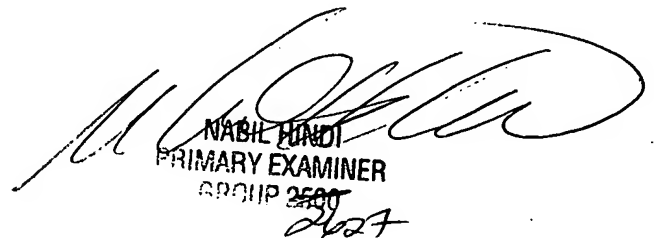 NABIL HINDI
PRIMARY EXAMINER
GROUP 2500
2627